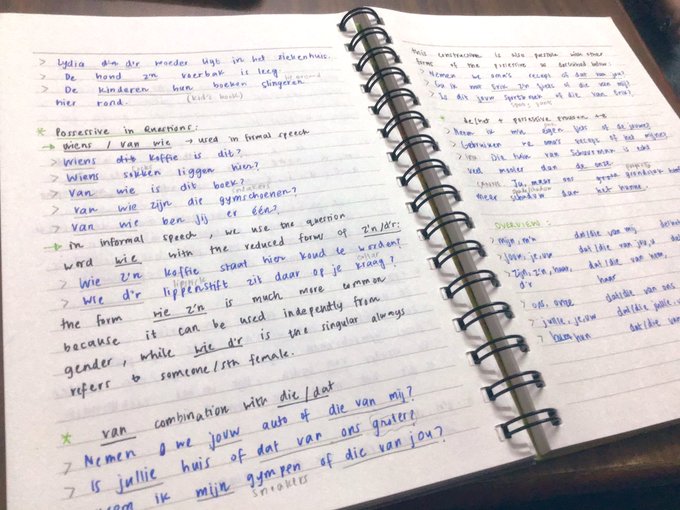 > Lydia d'r moeder ligt in het ziekenhuis.
> De hond z'n voerbak is leeg.
> De kinderen hun boeken slingeren
hier rond. (kid's book)
* Possessive in Questions:
→ wiens / van wie → used in formal speech
> Wiens koffie is dit?
> Wiens sokken liggen hier?
> Van wie is dit boek?
sneakers
> van wie zijn die gymschoenen?
> van wie ben jij er één?
→ in informal speech, we use the question
word wie with the reduced form of z'n/d'r:
> Wie z'n koffie staat hier koud te worden?
lipstick collar
> Wie d'r lippenstift zit daar op je kraag?
the form wie z'n is much more common
because it can be used indepently from
gender, while wie d'r is the singular always
refers to someone/sth female.
* van combination with die/dat
> Nemen we jouw auto of die van mij?
> Is jullie huis of dat van ons groter?
ik mijn gympen of die van jou?
sneakers
this construction is also possible with other
forms of the possessive as described below:
> Nemen we oma's recept of dat van jou?
> Ga ik met Erik z'n fiets of die van mij?
> Is dit jouw of die van Erik?
* de/het + possessive pronoun + e
> Neem ik mijn eigen fiets of de jouwe?
> Gebruiken we oma's recept of het mijne?
> Die tuin van is echt
veel mooier dan de onze.
Ja, maar ons grote
meer dan het hunne.
OVERVIEW:
> mijn, m'n die/dat van mij
> jouw, je, uw dat/die van jou, u
> Zijn, z'n, haar, d'r dat/die van hem, haar
> ons, onze dat/die van ons
> jullie, je, uw dat/die van
> hun dat/die van